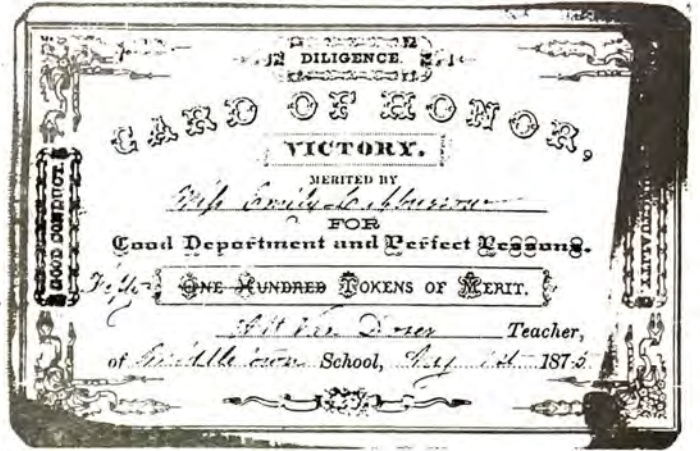 DILIGENCE.
CARD OF HONOR,
VICTORY.
MERITED BY
Miss Emily
FOR
Good Deportment and Perfect Lessons.
Fifty ONE HUNDRED TOKENS OF MERIT.
Van Teacher,
of Middletown School, 1875
GOOD CONDUCT.